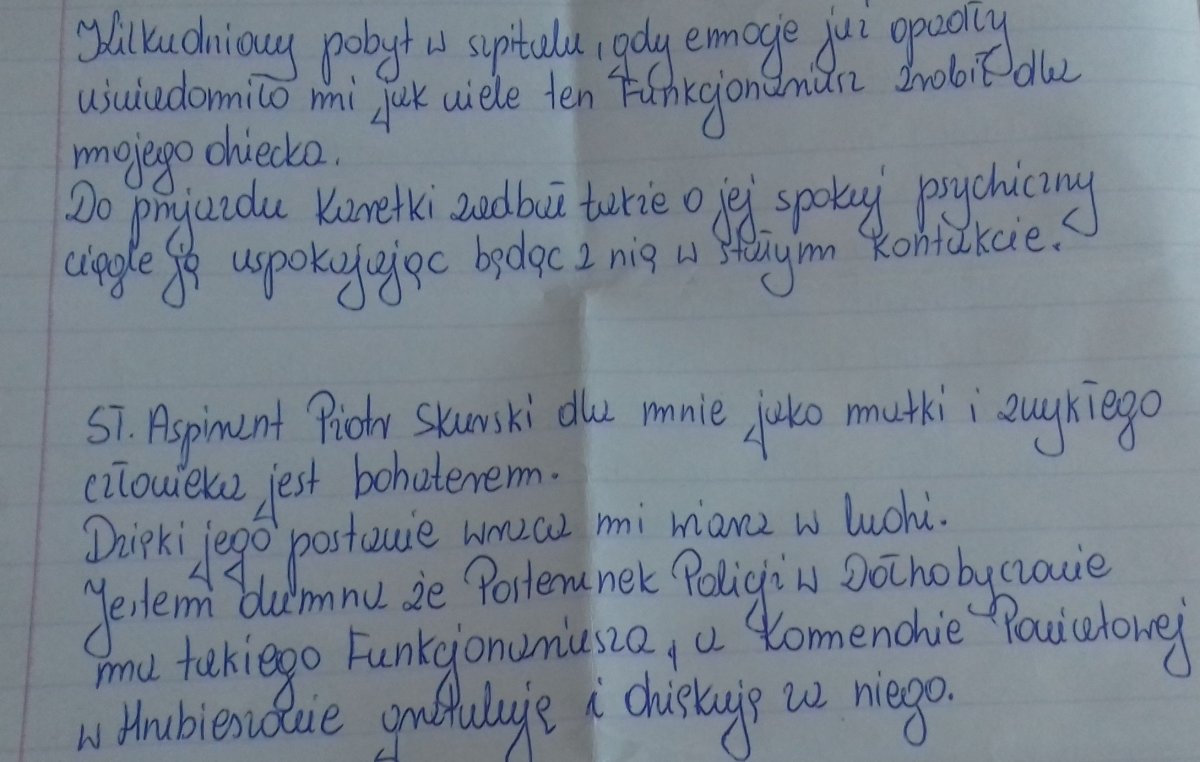 Kilkudniowy pobyt w szpitalu, gdy emocje już opadły
uświadomiło mi jak wiele ten Funkcjonariusz zrobił dla
mojego dziecka.
Do przyjazdu Karetki zadbał także o jej spokuj psychiczny
ciągle ją uspokajając będąc z nią w stałym kontakcie.
St. Aspirant Piotr Skurski dla mnie jako matki i zwykłego
człowieka jest bohaterem.
Dzięki jego postawie wraca mi wiara w ludzi.
Jestem dumna że Posterunek Policji w Dołhobyczowie
ma takiego Funkcjonariusza, a Komendzie Powiatowej
w Hrubieszowie gratuluję i dziękuję za niego.